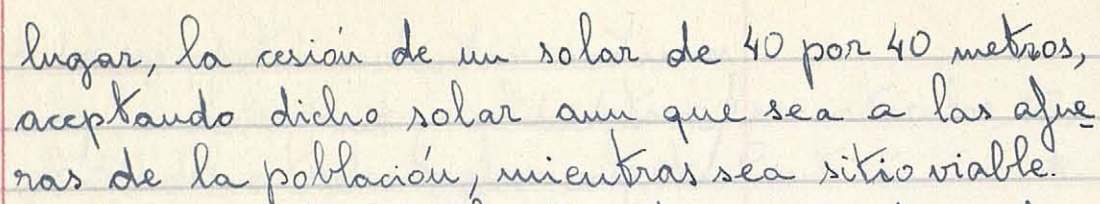 lugar, la cesión de un solar de 40 por 40 metros,
aceptando dicho solar aun que sea a las afue
ras de la población, mientras sea sitio viable.